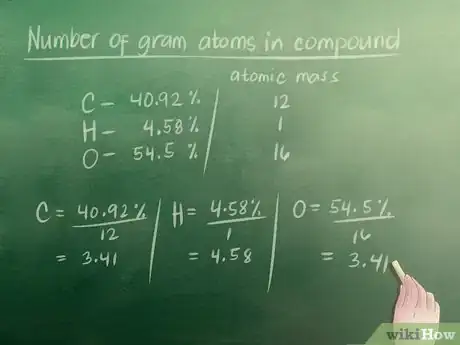 Number of gram atoms in compound
atomic mass
C – 40.92% 12
H – 4.58% 1
O – 54.5 % 16
C = 40.92% H = 4.58% O = 54.5%
12 1 16
= 3.41 = 4.58 = 3.41
wikiHow